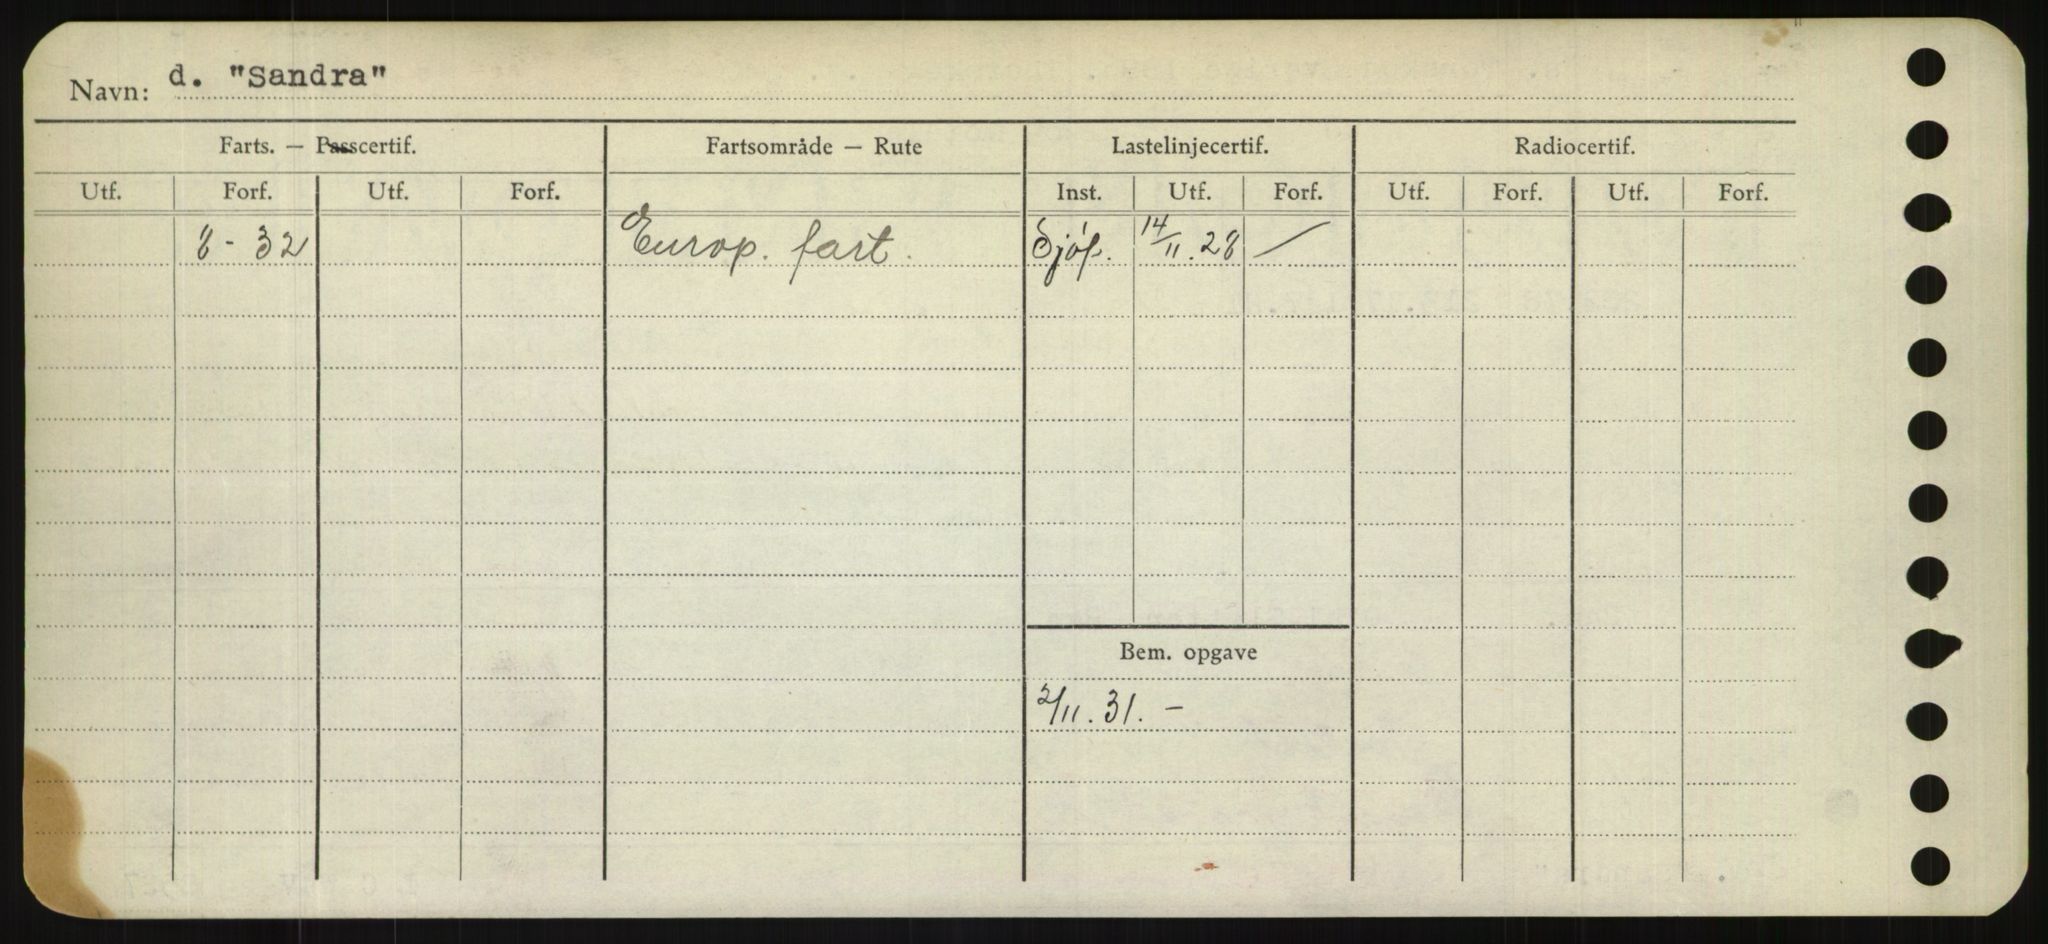 Navn: d. "Sandra"
Farts. — Passcertif. Fartsområde — Rute Lastelinjecertif. Radiocertif.
Utf. Forf. Utf. Forf. Inst. Utf. Forf. Utf. Forf. Utf. Forf.
8 - 32 Europ. fart. Sjöf. 14/11.28 —
Bem. opgave
2/11.31. -